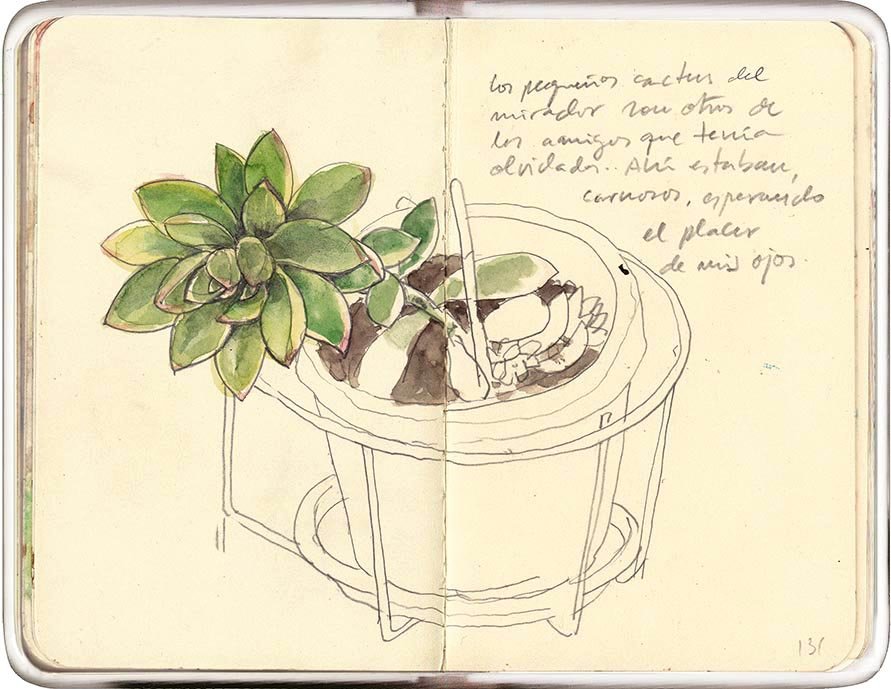 los pequeños cactus del
mirador son otros de
los amigos que tenía
olvidados.. Ahí estaban,
carnosos, esperando
el placer
de mis ojos.